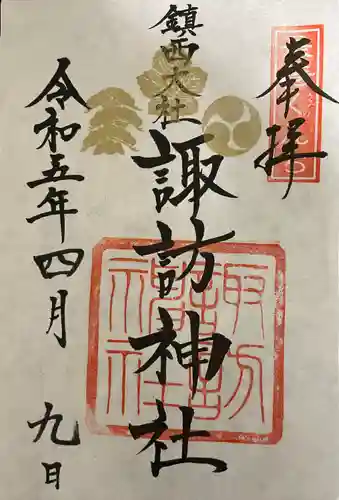 奉拝
鎮西大社
諏訪神社
諏訪神社
令和五年四月九日